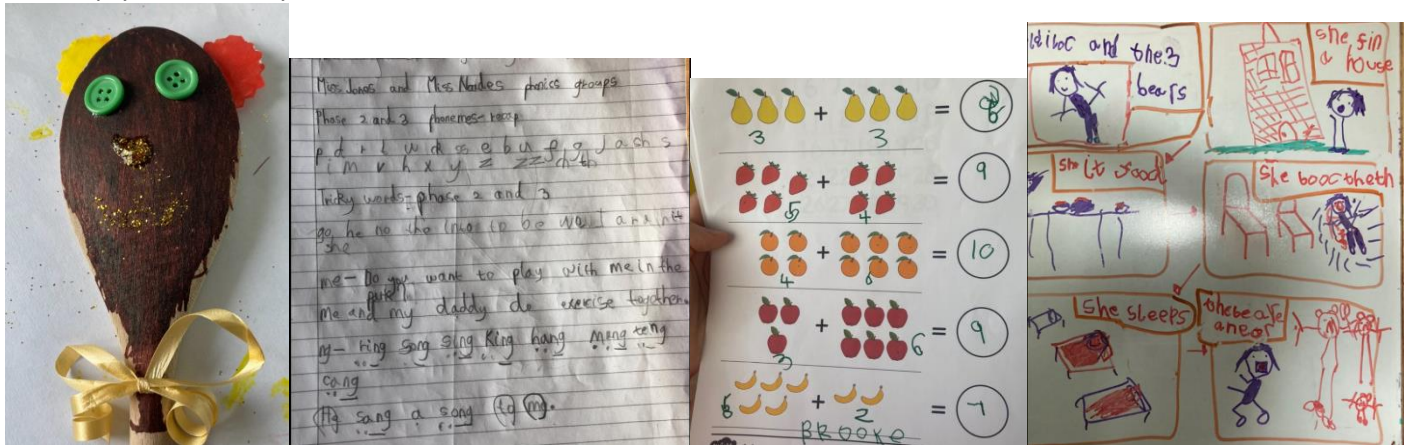 Miss Jones and Miss Nardes phonics groups
Phase 2 and 3 phonemes- recap
p d r t w c k s e b u f g j a ch s
i m v h x y z zz ch th
Tricky words- phase 2 and 3
go he no the into to be was
she
me- Do you want to play with me in the
park
me and my daddy do exercise together.
ng- ring song sing king hang meng teng
cang
He sang a song to me.
+ =
3 3
+ = 9
5 4
+ = 10
4 6
+ = 9
3 6
+ =
5 2
BROOKE
and the 3
bears
she fin
a house
she it food
she booc theth
she sleeps